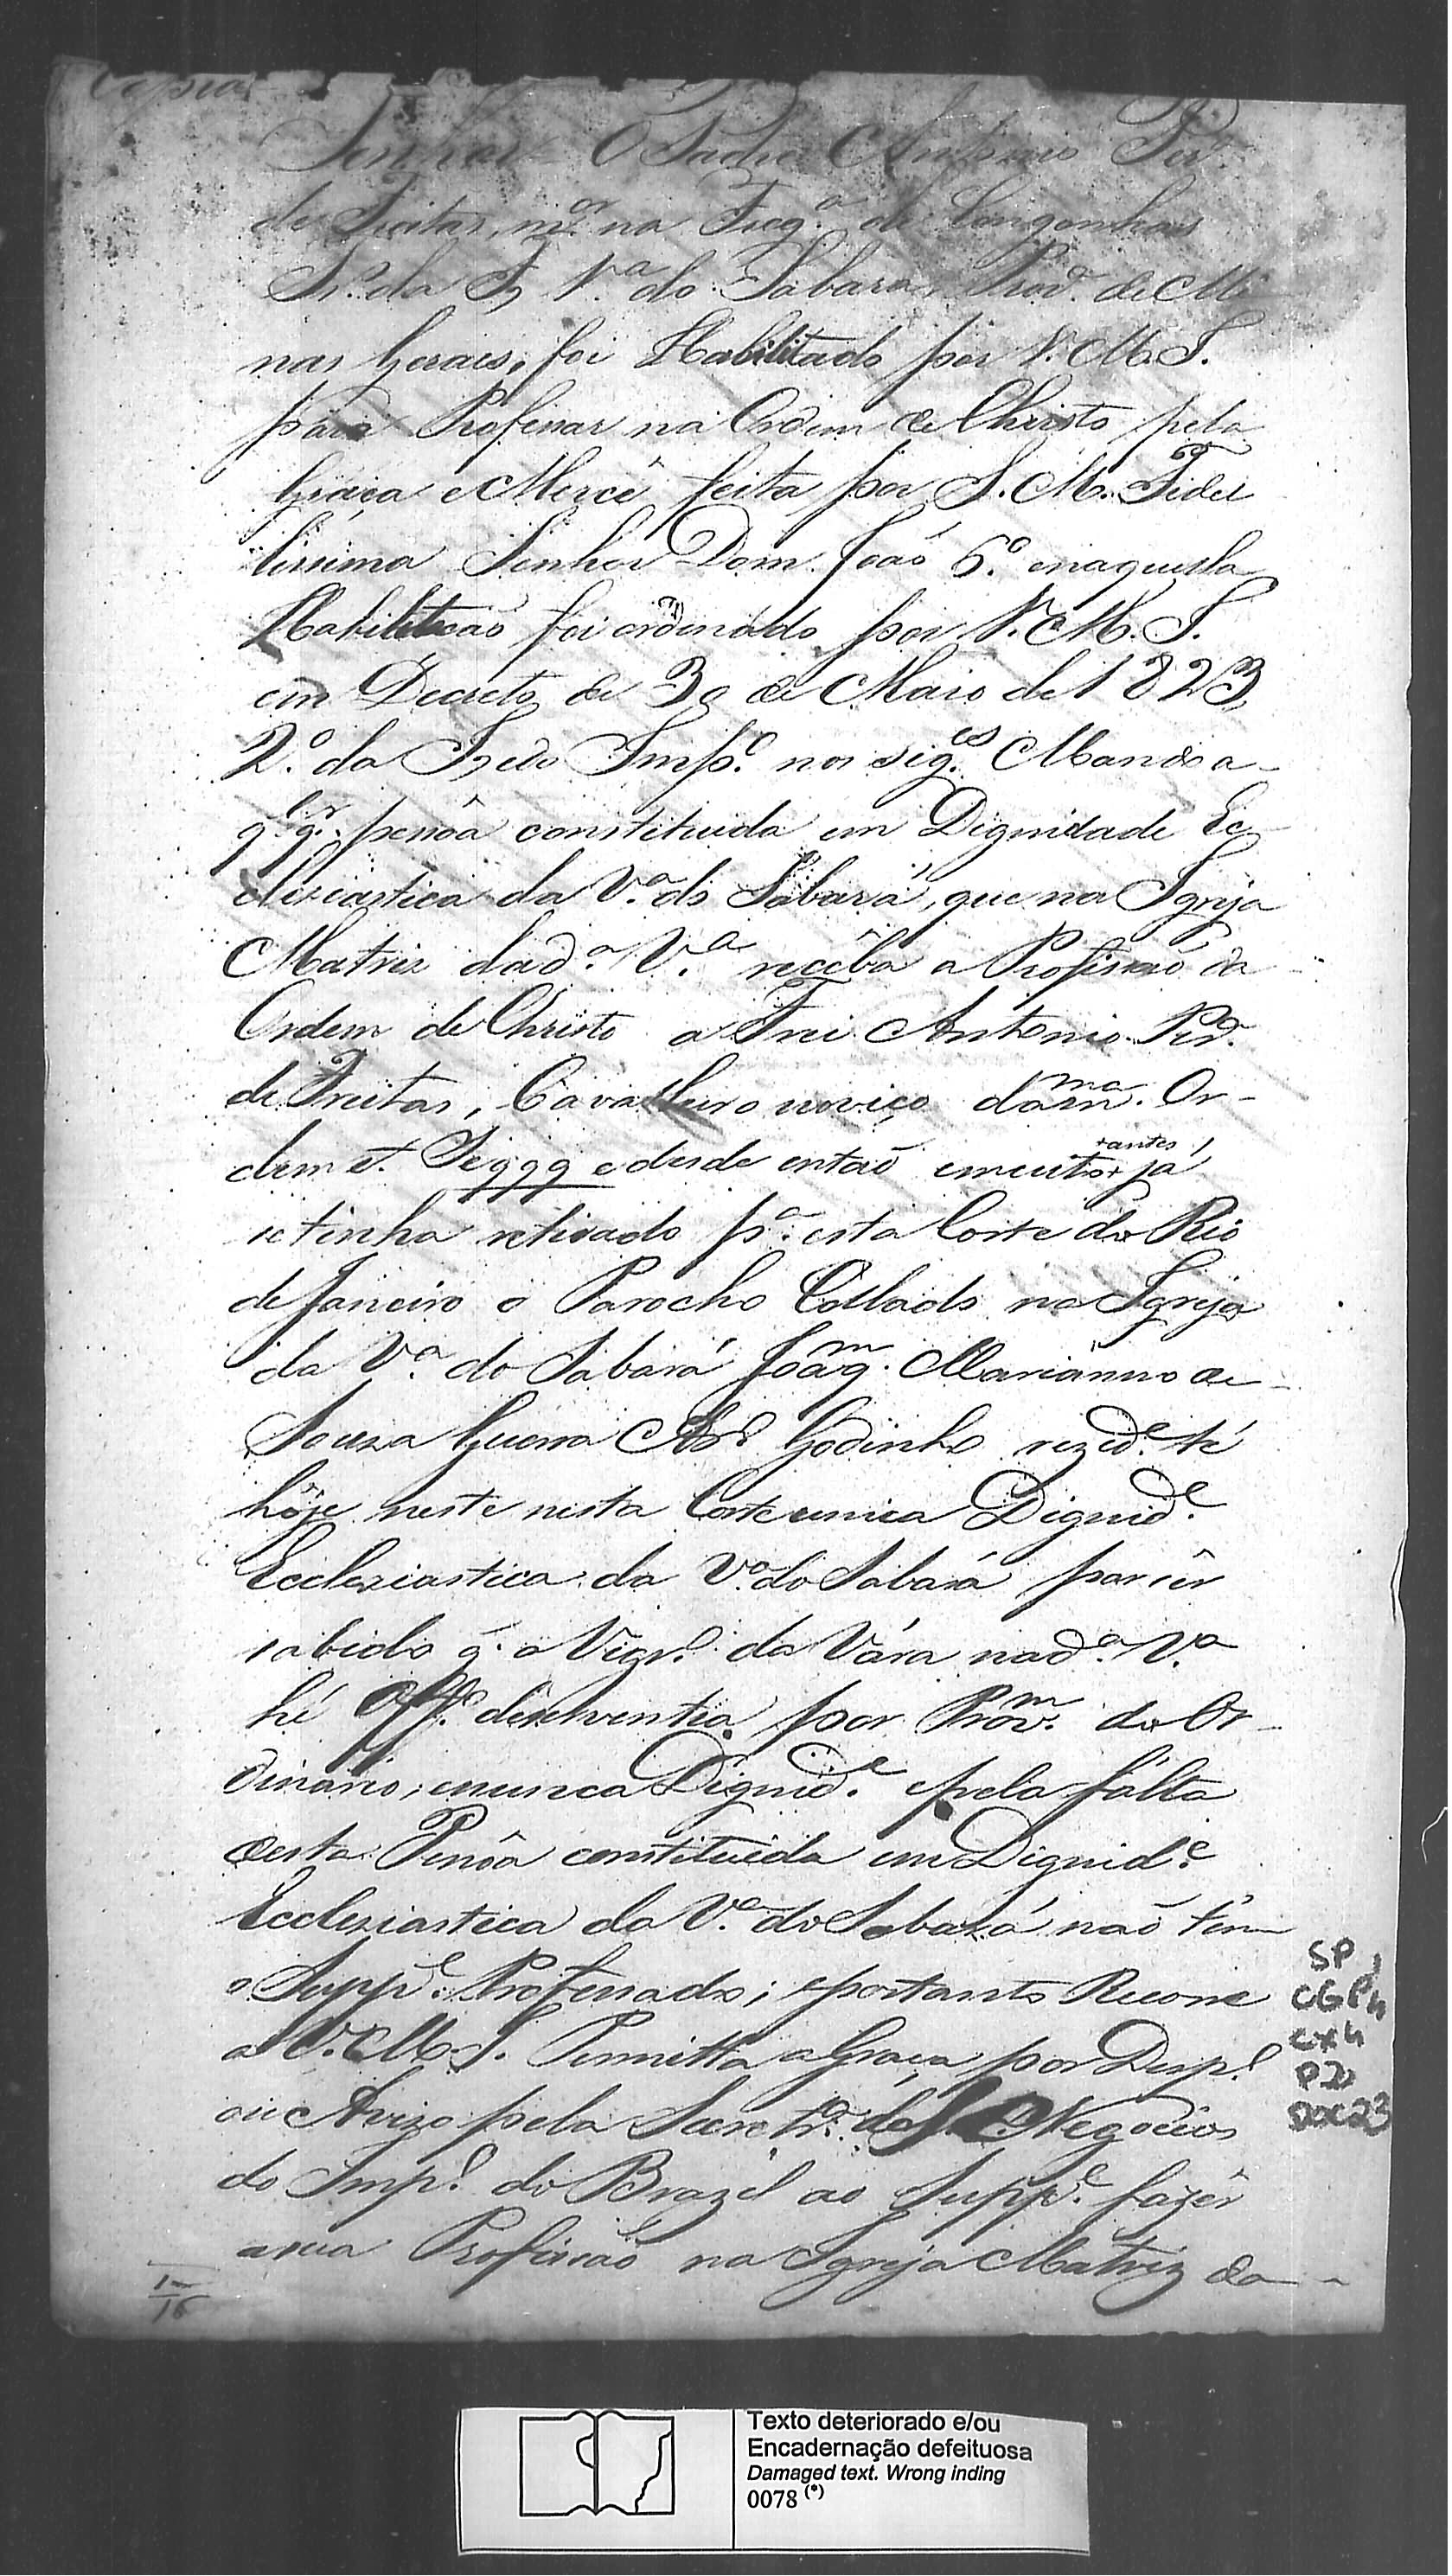 Copia
Senhor O Padre Antonio Per.ª
de Freitas, m.or na Freg.a de Congonhas
N.ª da V.a do Sabará Prov.ª de Mi
nas Geraes, foi Habilitado por V. M. I.
para Professar na Ordem de Christo pela
Graça e Mercê feita por S. M. Fidel
lissima Senhor Dom João 6.º enaquella
Habilitaçaõ foi ordenádo por V. M. I.
em Decreto de 30 de Maio de 1823
2.º da I. edo Imp.º nos sig.es Mando a-
q.l q.r pessôa constituida em Dignidade Ec
clesiastica da V.a do Sabará, que na Igreja
Matriz dad.a V.a recêba a Profissaõ da
Ordem de Christo a Frei Antonio Per.ª
de Freitas, Cavalleiro noviço dam.ma Or-
dem et. Seggg e desde entaõ emuito + antes já
se tinha retirado p.a esta Corte do Rio
de Janeiro o Parocho Collado na Igreja
da V.a do Sabará Joaq.m Marianno de
Souza Guerra Godinho rezid.e té
hôje neste nesta Corte unica Dignid.e
Ecclesiastica da V.a do Sabará por sêr
sabido q. o Vigr.º da Vára nad.a V.a
hé Off.º deserventia por Prov.m do Or-
dinário, enunca Dignid.e epela fálta
desta Pessôa constituida em Dignid.e
Ecclesiastica da V.a do Sabará naõ tem
o Supp.e Professado; eportanto Recorre
a V. M. I. Permitta a Graça por Desp.º
ou Avizo pela Secretr.a dos Negocios
do Imp.º do Brazil ao Supp.e fazêr
asua Profissaõ na Igreja Matriz da
SP
CGP4
CX4
P2
DOC23
Texto deteriorado e/ou
Encadernação defeituosa
Damaged text. Wrong inding
0078 (*)